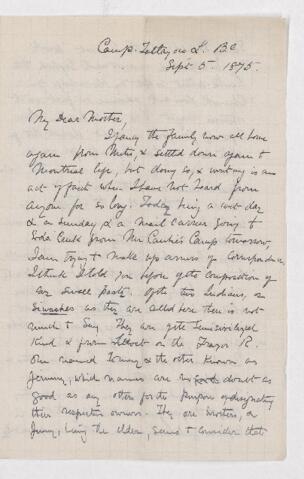 Camp. Tatlayoco L. B.C.
Sept 5. 1875.
My Dear Mother,
I fancy the family now all home
again from Metis, & settled down again to
Montreal life, but doing so, & writing is an
act of faith when I have not heard from
anyone for so long. Today being a wet day
& a Sunday & a mail carrier going to
Soda Creek from Mr Cambie's Camp tomorrow,
I am trying to make up arrears of Correspondence
I think I told you before of the composition of
our small party. Of the two Indians, or
Siwashes as they are called here there is not
much to say. They are of the Semicivilized
kind & from Lillooet on the Frazer R.
One named Tommy & the other known as
Jemmy, which names are no doubt as
good as any other for the purpose of designating
their respective owners. They are brothers, &
Jemmy, being the elder, seems to consider that